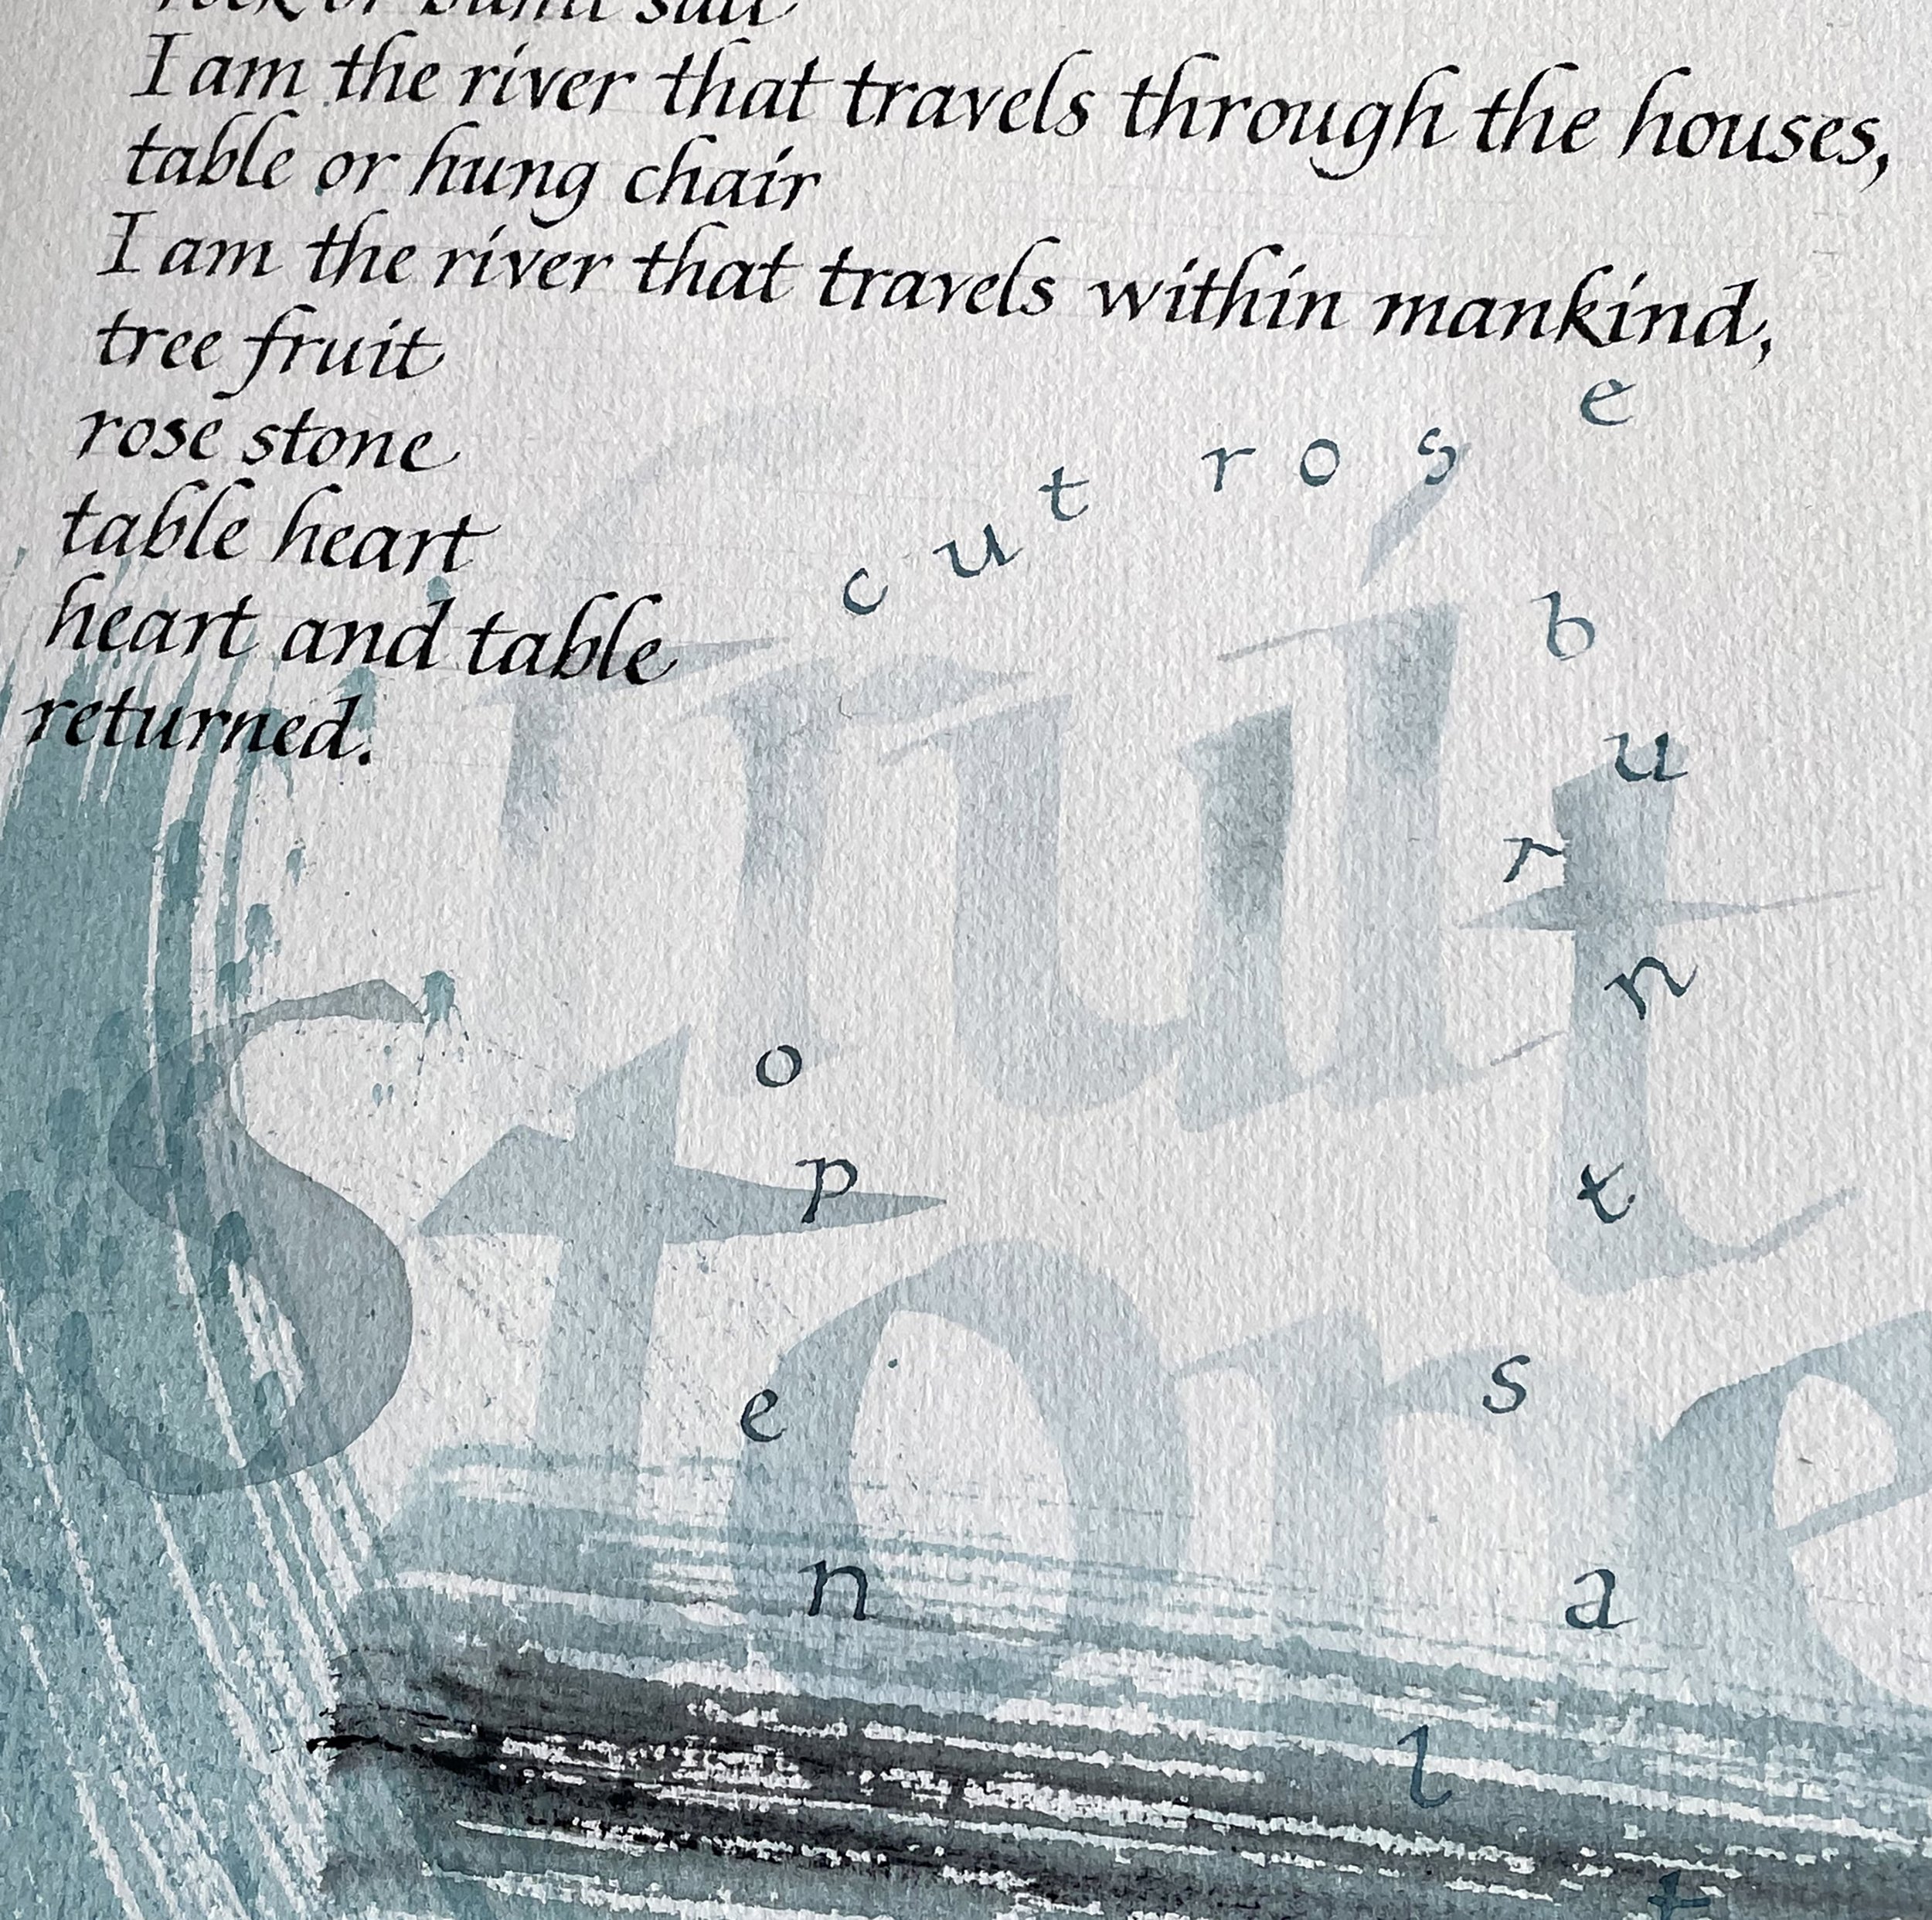 rock or burnt salt
I am the river that travels through the houses,
table or hung chair
I am the river that travels within mankind,
tree fruit
rose stone
table heart
heart and table
returned.
cut rose
burnt
salt
open
fruit
store